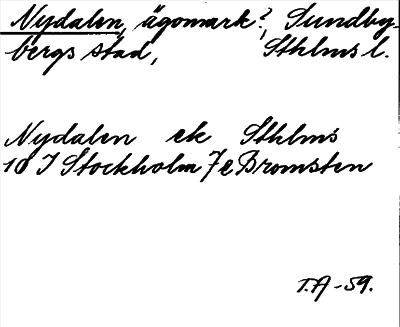 Nydalen, ägomark?, Sundby-
bergs stad, Sthlms l.
Nydalen ek Sthlms
10 I Stockholm 7e Bromsten
T.A -59.